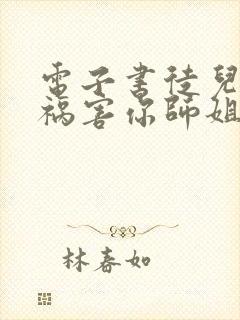 電子書徒兒
祸害你師姐
林春如